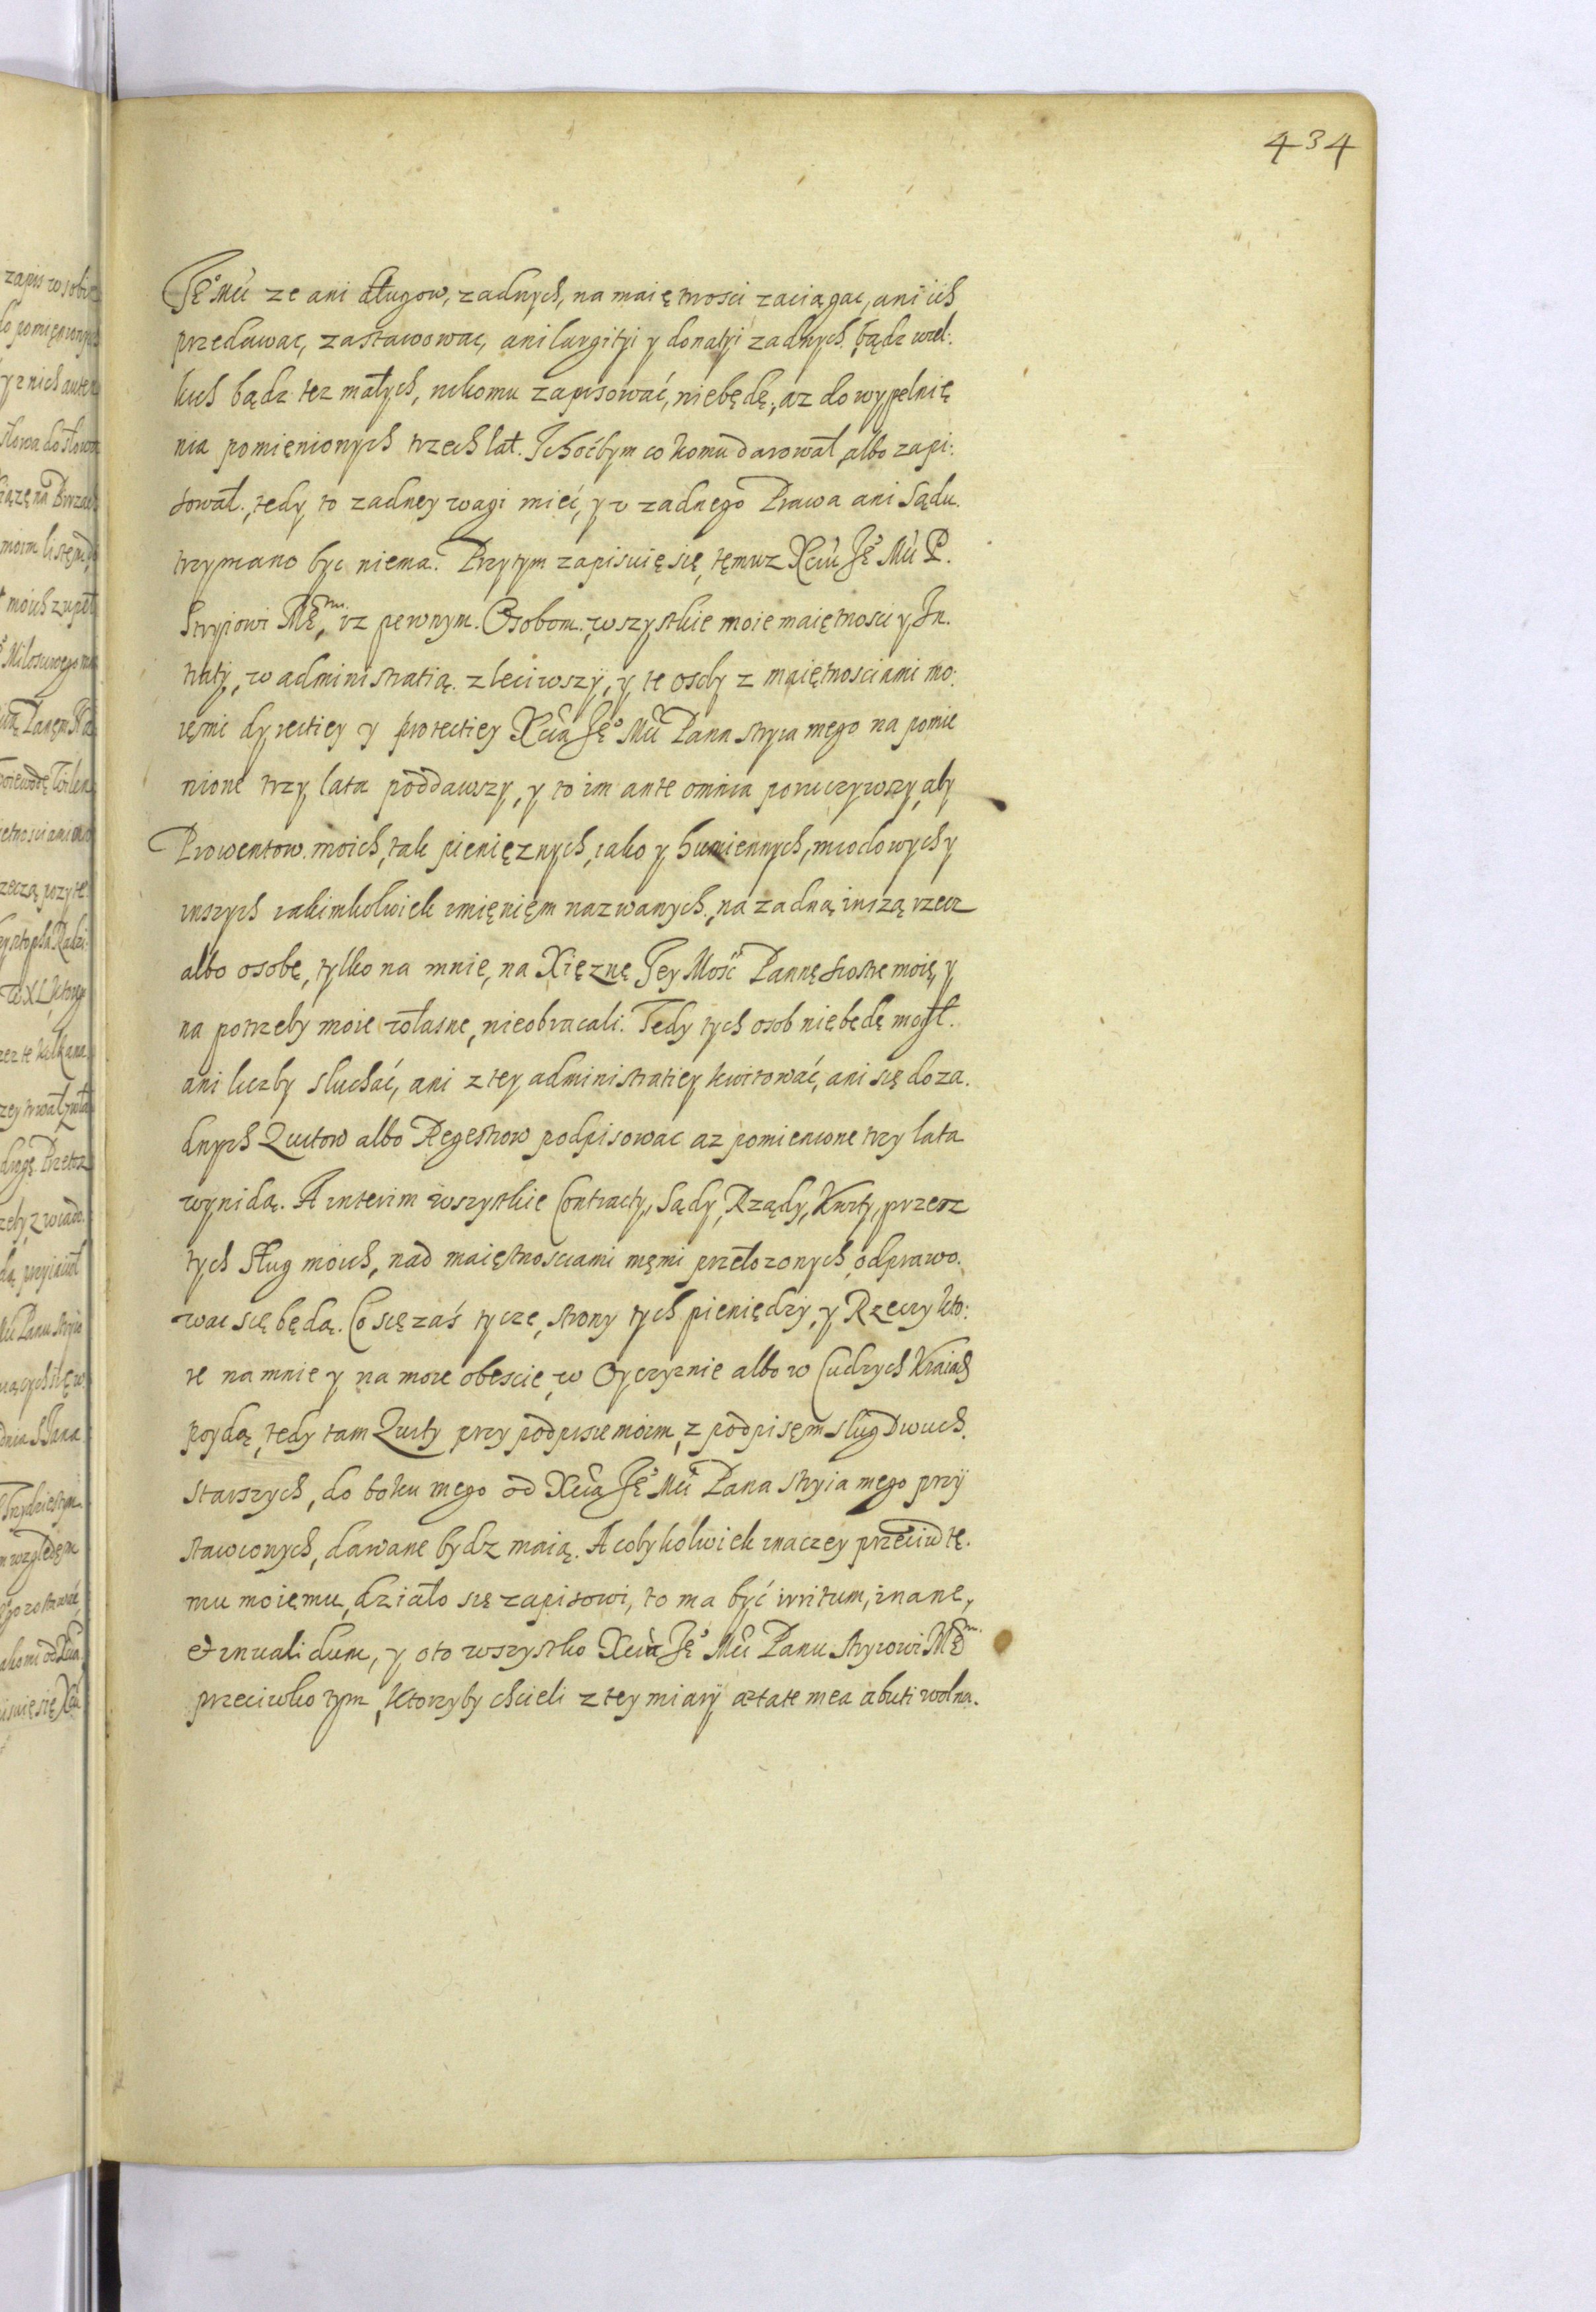 434
Jeº Mci ze ani długow, zadnych, na maiętnosci zaciągac, ani ich
przedawac, zastawowac, ani largitÿi y donatÿi zadnych, bądz wiel:
kich bądz tez małych, nikomu zapisować, niebędę, az do wypelnię
nia pomięnionych trzech lat. I choćbym co komu darował, albo zapi:
sował, tedy to zadney wagi mieć, y v zadnego Prawa ani Sądu.
trzymano byc niema. Przytym zapisuię się, tęmuz Xciu Jęº Mci P.
Stryiowi Męmu, iz pewnym. Osobom, wszystkie moie maiętnosci y In.
traty, w administratią zleciwszÿ, y te osoby z maiętnosciami mo:
ięmi dyrectiey y protectiey Xcia Jęº Mci Pana stryia mego na pomie
nione trzy lata poddawszy, y to im ante omnia poruczywszy, aby
Prowentow moich, tak pieniężnych, iako y humiennych, miodowych y
inszych iakimkolwiek imięnięm nazwanych, na zadną inszą rzecz
albo osobę, tylko na mnie, na Xięznę Jey Mość Pannę siostrę moię, y
na potrzeby moie własne, nieobracali. Tedy tych osob niebędę mogł.
ani liczby sluchać, ani z tey administratiey kwitować, ani się do za.
dnych Quitow albo Regestrow podpisowac az pomienione trzy lata
wynidą. A interim wszystkie Contracty, Sądy, Rządy, Kwity, przesz
tych Sług moich, nad maiętnosciami męmi przełozonych, odprawo.
wac się będą. Co się zaś tycze, strony tych pieniędzy, y Rzeczy kto:
re na mnie y na moie obescie, w Oyczyznie albo w Cudzych Kraiach
poydą, tedy tam Quity przy podpisie moim, z podpisęm slug Dwuch.
starszych, do boku mego od Xcia Jęº Mci Pana stryia mego przÿ
stawionych, dawane bydz maią. A cobykolwiek inaczey przeciw tę.
mu moięmu, działo się zapisowi, to ma być irritum, inane,
et inualidum, y oto wszystko Xciu Jęº Mci Panu Stryiowi Męmu
przeciwko tym, ktorzyby chcieli z tey miarÿ ætate mea abuti wolna.